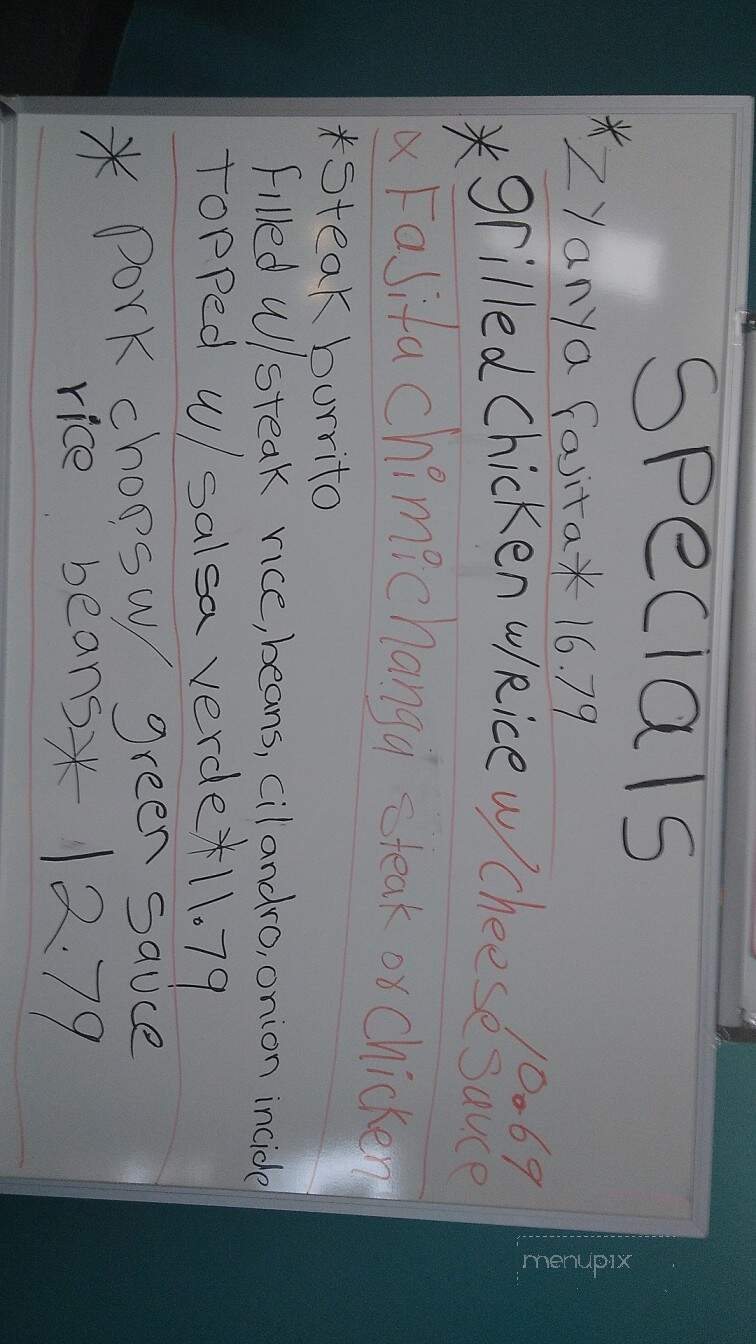 Specials
*Zyanya fajita* 16.79
*grilled chicken w/Rice w/cheese sauce
10.69
* Fajita chimichanga steak or chicken
*Steak burrito
filled w/steak rice, beans, cilandro, onion incide
Topped w/ salsa verde*11.79
* Pork chops w/ green sauce
rice beans* 12.79
menupix